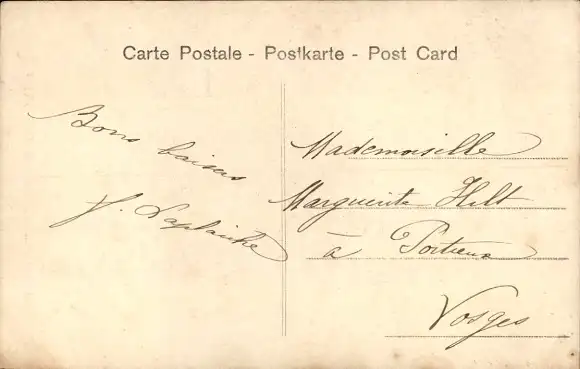 Carte Postale - Postkarte - Post Card
Bons baisers
Mademoiselle
Marguerite Hilt
à Portieux
Vosges